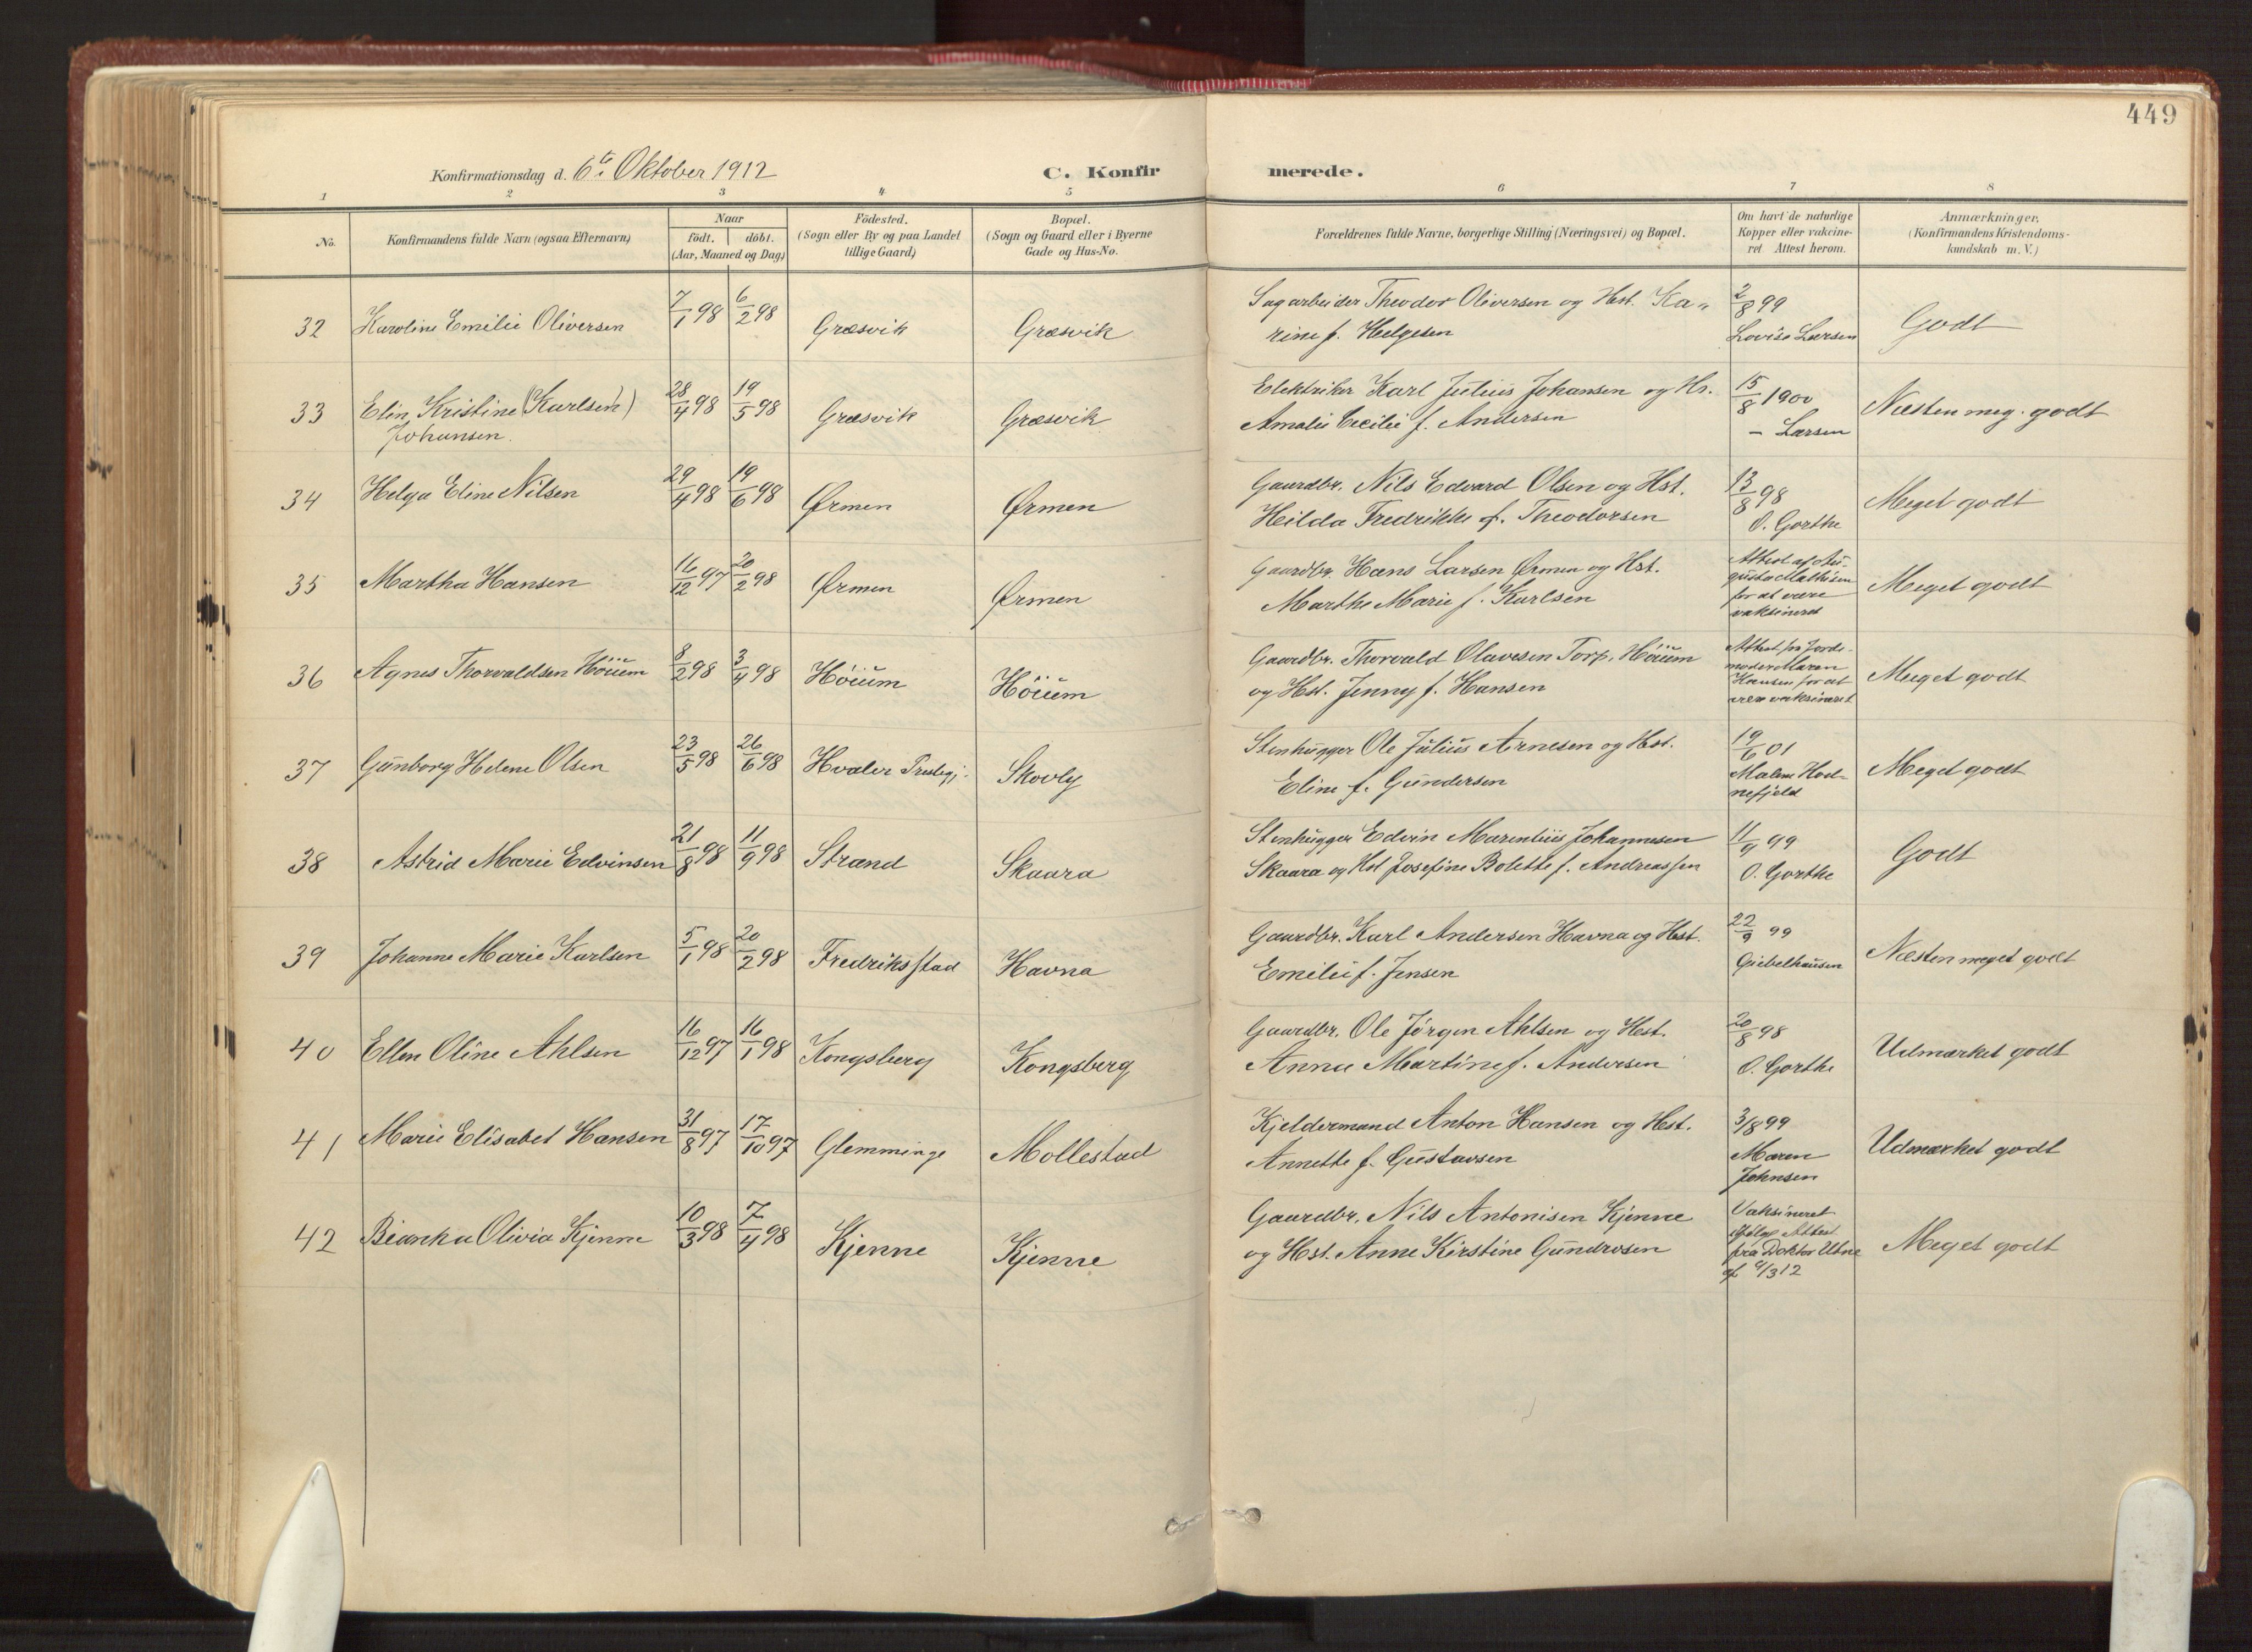 449
Konfirmationsdag d. 6te Oktober 1912
C. Konfirmerede.
1 2 3 4 5 6 7 8
No.
Konfirmandens fulde Navn (ogsaa Efternavn)
Naar
födt. döbt.
(Aar, Maaned og Dag)
Födested.
(Sogn eller By og paa Landet
tillige Gaard)
Bopæl.
(Sogn og Gaard eller i Byerne
Gade og Hus-No.
Forældrenes fulde Navne, borgerlige Stilling (Næringsvei) og Bopæl.
Om havt de naturlige
Kopper eller vakcine-
ret Attest herom.
Anmærkninger.
(Konfirmandens Kristendoms-
kundskab m. V.)
32 Karoline Emilie Oliversen 7/1 98 6/2 98 Græsvik Græsvik
Sagarbeider Theodor Oliversen og Hst. Ka-
rine f. Helgesen
2/8 99
Lovise Larsen
Godt
33 Elin Kristine (Karlsen)
Johansen.
28/4 98 19/5 98 Græsvik Græsvik
Elektriker Karl Julius Johansen og Hs.
Amalie Cecilie f. Andersen
15/8 1900
– Larsen
Næsten meg. godt
34 Helga Eline Nilsen 29/4 98 19/6 98 Ørmen Ørmen
Gaardbr. Nils Edvard Olsen og Hst.
Heilda Fredrikke f. Theodorsen
13/8 98
O. Gorthe
Meget godt
35 Martha Hansen 16/12 97 20/2 98 Ørmen Ørmen
Gaardbr. Hans Larsen Ørmen og Hst.
Marthe Marie f. Karlsen
Attest af Au-
gusta Mathisen
for at være
vaksineret
Meget godt
36 Agnes Thorvaldsen Höium 8/2 98 3/4 98 Höium Höium
Gaardbr. Thorvald Olavesen Torp, Höium
og Hst. Jenny f. Hansen
Attest fra Jorde-
moder Maren
Hansen for at
være vaksineret
Meget godt
37 Gunborg Helene Olsen 23/5 98 26/6 98 Hvaler Prestegj. Skovly
Stenhugger Ole Julius Arnesen og Hst.
Eline f. Gundersen
19/6 01
Malene Hod-
nefjeld
Meget godt
38 Astrid Marie Edvinsen 21/8 98 11/9 98 Strand Skaara
Stenhugger Edvin Marentius Johannesen
Skaara og Hst Josefine Bolette f. Andreassen
11/9 99
O. Gorthe
Godt
39 Johanne Marie Karlsen 5/1 98 20/2 98 Fredriksstad Havna
Gaardbr. Karl Andersen Havna og Hst.
Emilie f. Jensen
22/9 99
Giebelhausen
Næsten meget godt
40 Ellen Oline Ahlsen 16/12 97 16/1 98 Kongsberg Kongsberg
Gaardbr. Ole Jørgen Ahlsen og Hst.
Anna Martine f. Andersen
20/8 98
O. Gorthe
Udmærket godt
41 Marie Elisabet Hansen 31/8 97 17/10 97 Glemminge Mollestad
Kjeldermand Anton Hansen og Hst.
Annette f. Gustavsen
3/8 99
Maren
Johnsen
Udmærket godt
42 Bianka Olivia Kjenne 10/3 98 7/4 98 Kjenne Kjenne
Gaardbr. Nils Antonisen Kjenne
og Hst. Anne Kirstine Gundrosen
Vaksineret
ifølge Attest
fra Doktor Utne
af /3 12
Meget godt